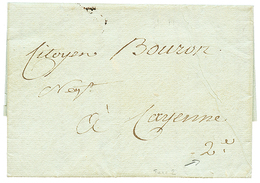 Citoyen Bouron
Negt
à Cayenne